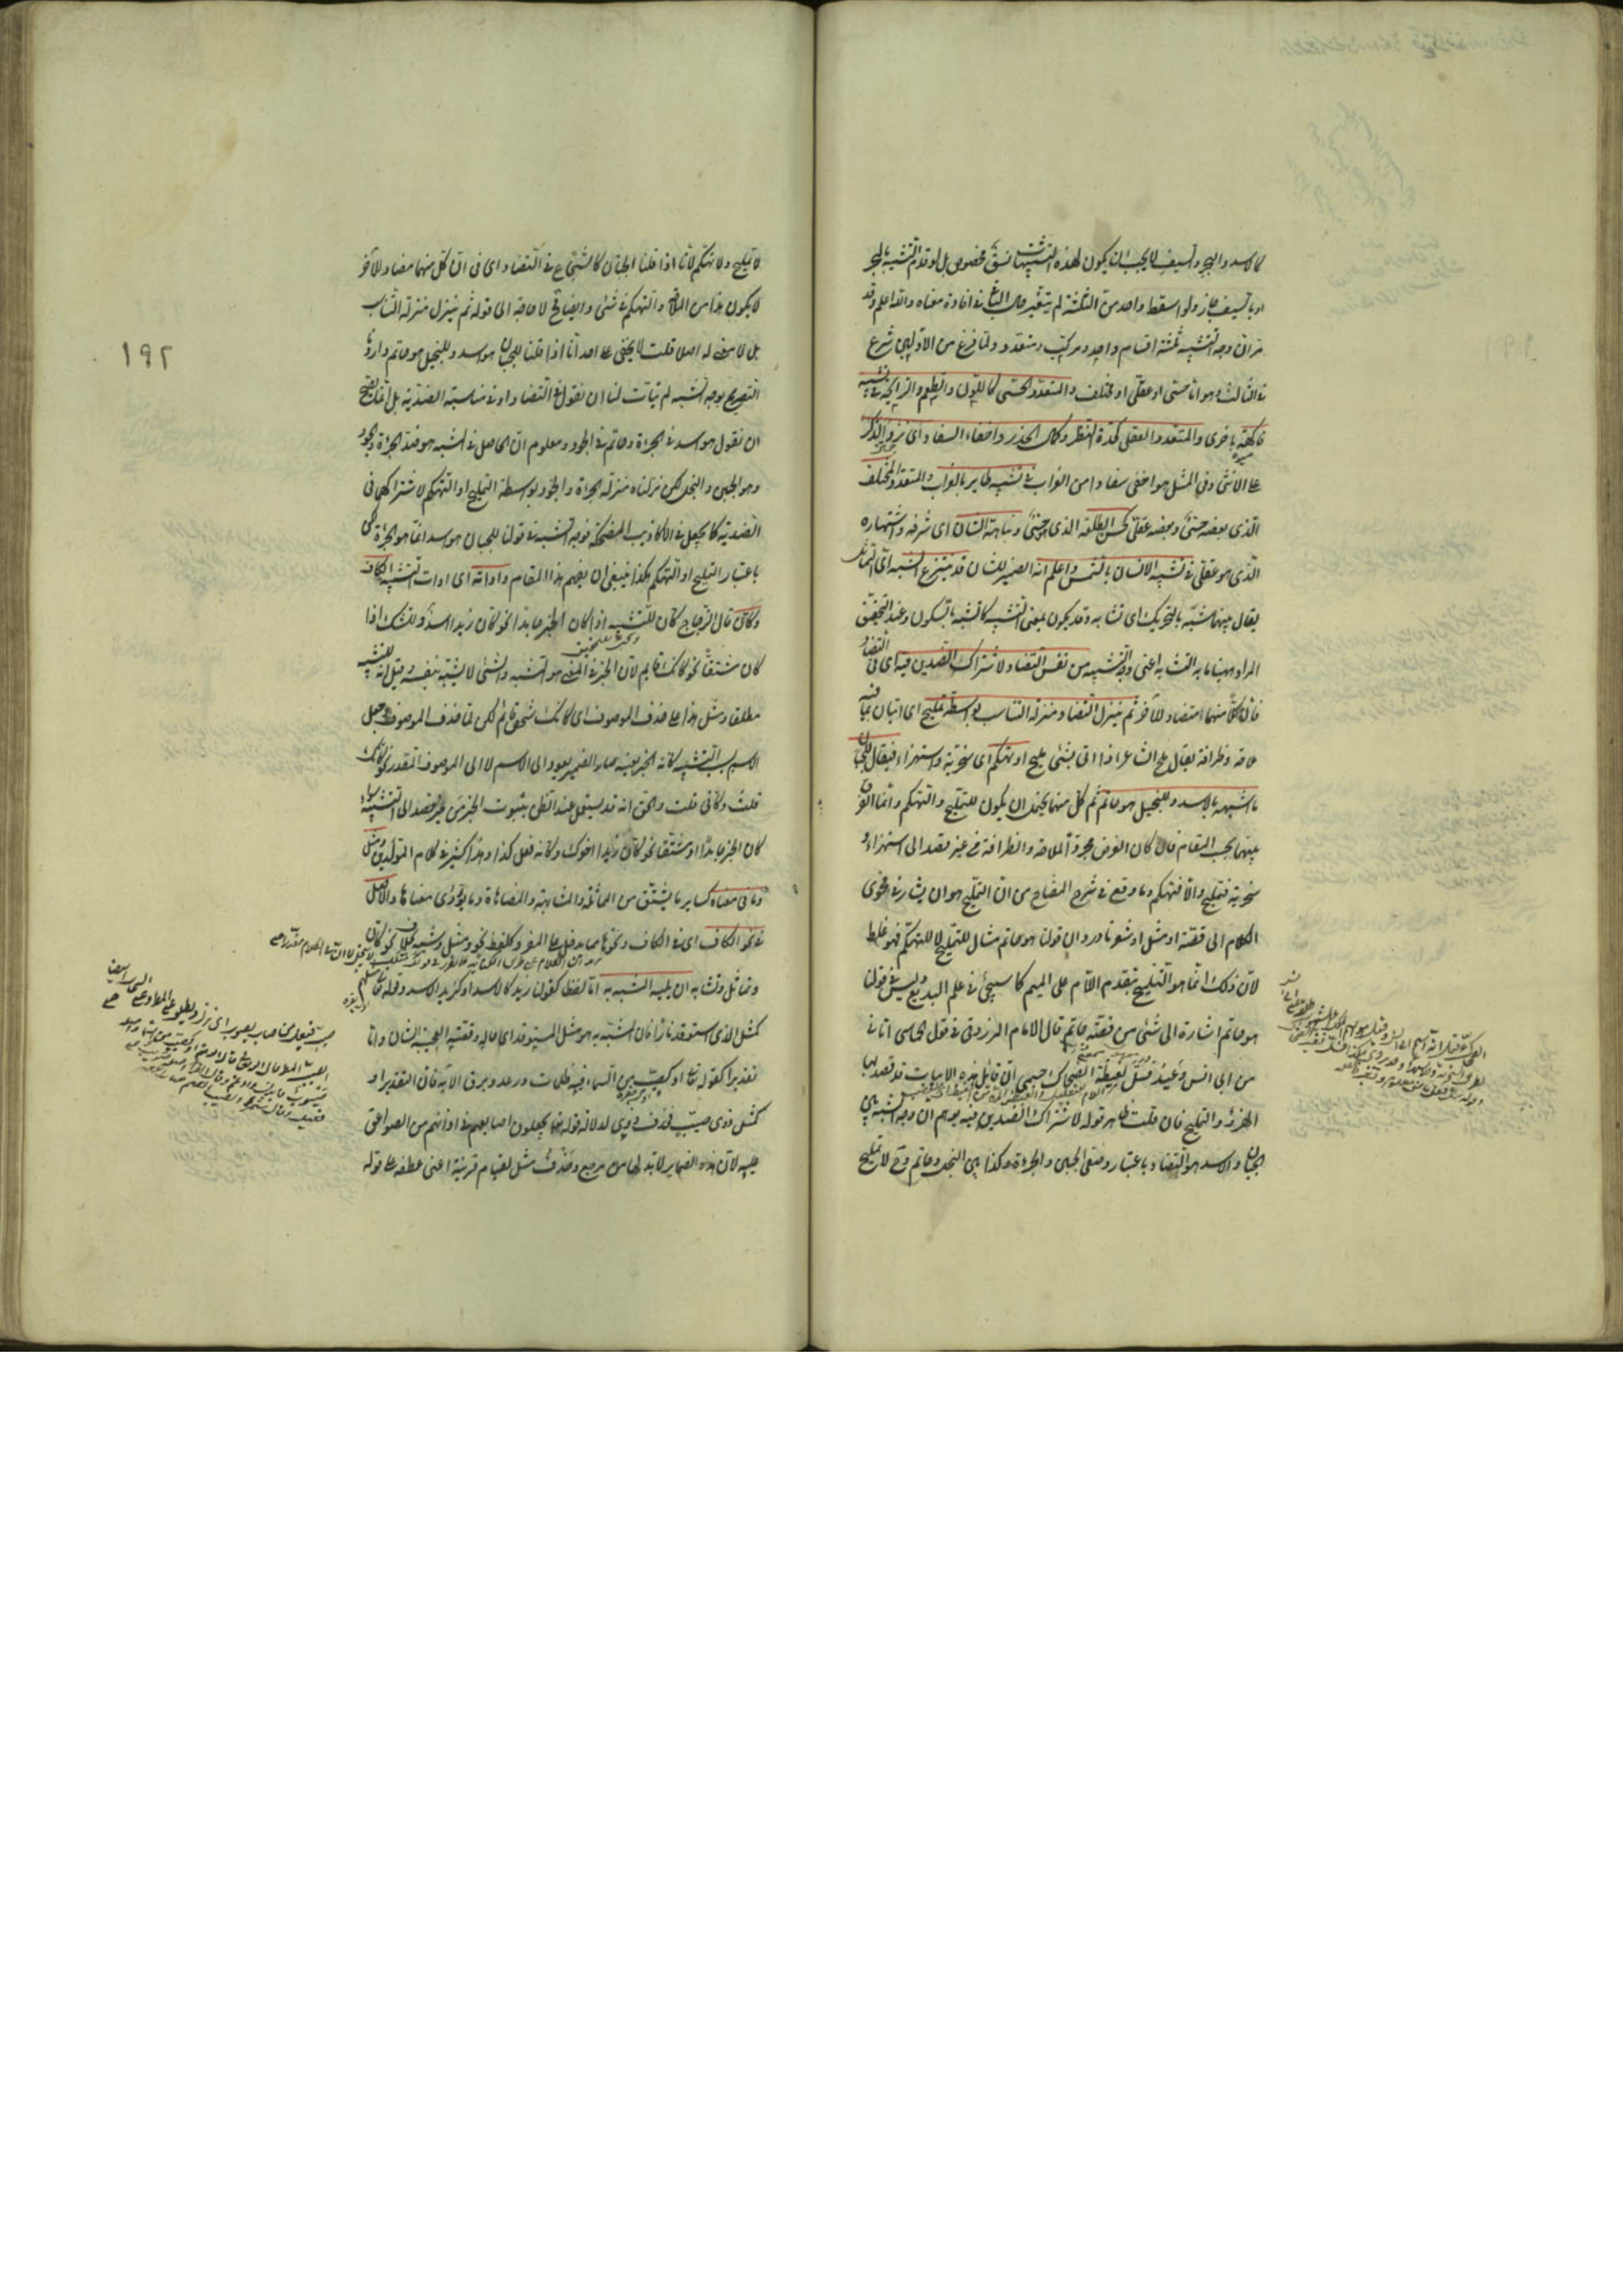 كالاسد والبحر والسيف لا يجب ان يكون لهذه التشبيهات نسق مخصوص بل لو قدم التشبيه بالبحر
او بالسيف جاز ولو اسقط واحد من الثلثة لم يتغير حال الباقى فى افادة معناه والله اعلم وقد
مر ان وجه التشبيه ثلثة اقسام واحد ومركب ومتعدد ولما فرغ من الاولين شرع
فى الثالث وهو اما حسى او عقلى او مختلف والمتعدد الحسى كاللون والطعم والرايحة فى تشبيه
فاكهة باخرى والمتعدد العقلى كحدة النظر وكمال الحذر واخفاء السفاد اى نزو الذكر
على الانثى وفى المثل هو اخفى سفادا من الغراب فى تشبيه طاير بالغراب والمتعدد المختلف
الذى بعضه حسى وبعضه عقلى كحسن الطلعة الذى هو حسى ونباهة الشان اى شرفه واشتهاره
الذى هو عقلى فى تشبيه الانسان بالشمس واعلم انه الضمير للشان قد ينتزع الشبه اى التماثل
يقال بينهما شبه بالتحريك اى تشابه وقد يكون بمعنى الشبيه كالشبه بالسكون وعند التحقيق
المراد ههنا ما به التشابه اعنى وجه التشبيه من نفس التضاد لاشتراك الضدين فيه اى فى التضاد
فان كلا منهما مضاد للآخر ثم ينزل التضاد منزلة التناسب بواسطة تمليح اى اتيان بما فيه
ملاحة وظرافة يقال ملح الشاعر اذا اتى بشئ مليح او تهكم اى سخرية واستهزاء فيقال للجبان
ما اشبهه بالاسد وللبخيل هو حاتم ثم كل منهما يحتمل ان يكون للتمليح والتهكم وانما الفرق
بينهما بحسب المقام فان كان الغرض مجرد الملاحة والظرافة من غير قصد الى استهزاء و
سخرية فتمليح والا فتهكم وما وقع فى شرح المفتاح من ان التمليح هو ان يشار فى فحوى
الكلام الى قصة او مثل او شعر نادر وان قولنا هو حاتم مثال للتمليح لا للتهكم فهو غلط
لان ذلك انما هو التلميح بتقديم اللام على الميم كما سيجئ فى علم البديع وليس فى قولنا
هو حاتم اشارة الى شئ من قصة حاتم قال الامام المرزوقى فى قول الحماسى اتانى
من ابى انس وعيد فسل لغيظة الضحاك جسمى ان قائل هذه الابيات قد قصد بها
الهزؤ والتمليح فان قلت ظاهر قوله لاشتراك الضدين فيه يوهم ان وجه الشبه بين
الجبان والاسد هو التضاد باعتبار وصفى الجبن والجرءة وكذا بين البخيل وحاتم وح لا تمليح
١٩٢
لا تمليح ولا تهكم لانا اذا قلنا الجبان كالشجاع فى التضاد اى فى ان كلا منهما مضاد للآخر
لا يكون هذا من الملاحة والتهكم فى شئ وايضا ح لا حاجة الى قوله ثم ينزل منزلة التناسب
بل لا معنى له اصلا قلت لا يخفى على احد انا اذا قلنا للجبان هو اسد وللبخيل هو حاتم واردنا
التصريح بوجه الشبه لم يتأت لنا ان نقول فى التضاد او فى مناسبة الضدية بل انما يصح
ان نقول هو اسد فى الجرءة وحاتم فى الجود ومعلوم ان الحاصل فى المشبه هو ضد الجرءة والجود
وهو الجبن والبخل لكن نزلناه منزلة الجرءة والجود بواسطة التمليح او التهكم لاشتراكهما فى
الضدية كما يجعل فى الاكاذيب المضحكة فوجه التشبيه فى قولنا للجبان هو اسد انما هو الجرءة لكن
باعتبار التمليح او التهكم هكذا ينبغى ان يفهم هذا المقام واداته اى ادات التشبيه الكاف
وكأن قال الزجاج كان للتشبيه اذا كان الخبر جامدا نحو كان زيدا اسد وللشك اذا
كان مشتقا نحو كانك قايم لان الخبر فى المعنى هو المشبه والشئ لا يشبه بنفسه وقيل انه للتشبيه
مطلقا ومثل هذا على حذف الموصوف اى كانك شخص قائم لكن لما حذف الموصوف وجعل
الاسم بسبب التشبيه كانه الخبر بعينه صار الضمير يعود الى الاسم لا الى الموصوف المقدر نحو كانك
قلت وكانى قلت والحق انه قد يستعمل عند الظن بثبوت الخبر من غير قصد الى التشبيه سواء
كان الخبر جامدا او مشتقا نحو كان زيدا اخوك وكانه فعل كذا وهذا كثير فى كلام المولدين ومثل
وما فى معناه كساير ما يشتق من المماثلة والمشابهة والمضاهاة وما يؤدى معناها والاصل
فى نحو الكاف اى فى الكاف ونحوها مما يدخل على المفرد كلفظ نحو ومثل وشبه بخلاف نحو كأن
وتماثل وتشابه ان يليه المشبه به اما لفظا كقولك زيد كالاسد او كزيد الاسد وقوله تعالى مثلهم
كمثل الذى استوقد نارا فان المشبه به هو مثل المستوقد اى حاله وقصته العجيبة الشان واما
تقديرا كقوله تعالى او كصيب من السماء فيه ظلمات ورعد وبرق الآية فان التقدير او
كمثل ذوى صيب فحذف ذوى لدلالة قوله تعالى يجعلون اصابعهم فى اذانهم من الصواعق
عليه لان هذه الضماير لا بد لها من مرجع وحذف مثل لقيام قرينة اعنى عطفه على قوله